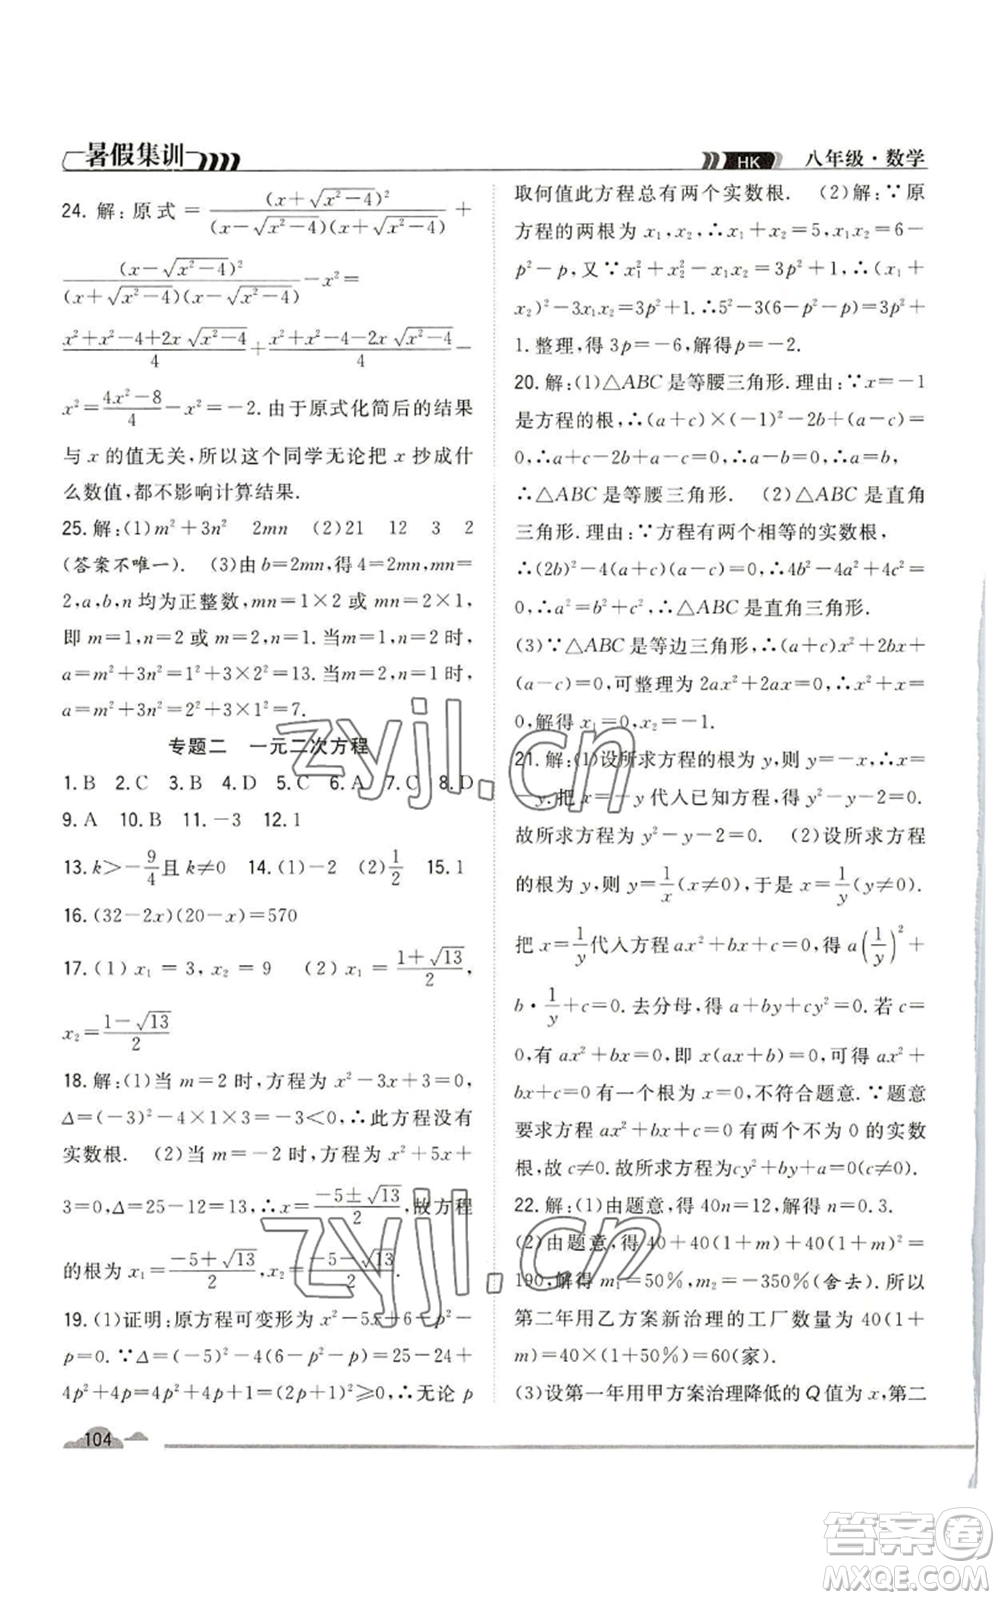 暑假集训
HK 八年级·数学
24. 解:原式=\frac{(x+\sqrt{x²-4})²}{(x-\sqrt{x²-4})(x+\sqrt{x²-4})}+
\frac{(x-\sqrt{x²-4})²}{(x+\sqrt{x²-4})(x-\sqrt{x²-4})}-x²=
\frac{x²+x²-4+2x\sqrt{x²-4}}{4}+\frac{x²+x²-4-2x\sqrt{x²-4}}{4}-
x²=\frac{4x²-8}{4}-x²=-2.由于原式化简后的结果
与 x 的值无关,所以这个同学无论把 x 抄成什
么数值,都不影响计算结果.
25.解:(1)m²+3n² 2mn (2)21 12 3 2
(答案不唯一). (3)由b=2mn,得 4=2mn,mn=
2,a,b,n 均为正整数,mn=1×2 或 mn=2×1,
即 m=1,n=2 或 m=2,n=1.当 m=1,n=2 时,
a=m²+3n²=1²+3×2²=13.当 m=2,n=1 时,
a=m²+3n²=2²+3×1²=7.
专题二 一元二次方程
1.B 2.C 3.B 4.D 5.C 6.A 7.C 8.D
9.A 10.B 11.-3 12.1
13.k>-\frac{9}{4}且 k≠0 14.(1)-2 (2)\frac{1}{2} 15.1
16.(32-2x)(20-x)=570
17.(1)x₁=3,x₂=9 (2)x₁=\frac{1+\sqrt{13}}{2},
x₂=\frac{1-\sqrt{13}}{2}
18.解:(1)当 m=2 时,方程为 x²-3x+3=0,
Δ=(-3)²-4×1×3=-3<0,∴此方程没有
实数根. (2)当 m=-2 时,方程为 x²+5x+
3=0,Δ=25-12=13,∴x=\frac{-5±\sqrt{13}}{2},故方程
的根为 x₁=\frac{-5+\sqrt{13}}{2},x₂=\frac{-5-\sqrt{13}}{2}.
19.(1)证明:原方程可变形为 x²-5x+6-p²-
p=0.∵Δ=(-5)²-4(6-p²-p)=25-24+
4p²+4p=4p²+4p+1=(2p+1)²≥0,∴无论 p
104
取何值此方程总有两个实数根. (2)解:∵原
方程的两根为 x₁,x₂,∴x₁+x₂=5,x₁x₂=6-
p²-p,又∵x₁²+x₂²-x₁x₂=3p²+1,∴(x₁+
x₂)²-3x₁x₂=3p²+1.∴5²-3(6-p²-p)=3p²+
1.整理,得 3p=-6,解得p=-2.
20.解:(1)△ABC 是等腰三角形.理由:∵x=-1
是方程的根,∴(a+c)×(-1)²-2b+(a-c)=
0,∴a+c-2b+a-c=0,∴a-b=0,∴a=b,
∴△ABC 是等腰三角形. (2)△ABC 是直角
三角形.理由:∵方程有两个相等的实数根,
∴(2b)²-4(a+c)(a-c)=0,∴4b²-4a²+4c²=
0,∴a²=b²+c²,∴△ABC 是直角三角形.
(3)∵△ABC 是等边三角形,∴(a+c)x²+2bx+
(a-c)=0,可整理为 2ax²+2ax=0,∴x²+x=
0,解得 x₁=0,x₂=-1.
21.解:(1)设所求方程的根为 y,则 y=-x,∴x=
-y.把 x=-y 代人已知方程,得 y²-y-2=0.
故所求方程为 y²-y-2=0. (2)设所求方程
的根为 y,则 y=\frac{1}{x}(x≠0),于是 x=\frac{1}{y}(y≠0).
把 x=\frac{1}{y}代入方程 ax²+bx+c=0,得 a(\frac{1}{y})²+
b·\frac{1}{y}+c=0.去分母,得 a+by+cy²=0.若 c=
0,有 ax²+bx=0,即 x(ax+b)=0,可得 ax²+
bx+c=0 有一个根为 0,不符合题意.∵题意
要求方程 ax²+bx+c=0 有两个不为 0 的实数
根,故 c≠0.故所求方程为cy²+by+a=0(c≠0).
22.解:(1)由题意,得 40n=12,解得 n=0.3.
(2)由题意,得 40+40(1+m)+40(1+m)²=
190,解得 m₁=50%,m₂=-350%(舍去).所以
第二年用乙方案新治理的工厂数量为 40(1+
m)=40×(1+50%)=60(家).
(3)设第一年用甲方案治理降低的 Q 值为 x,第二
zyjl.cn
zyjl.cn
答案卷
MXQE.COM